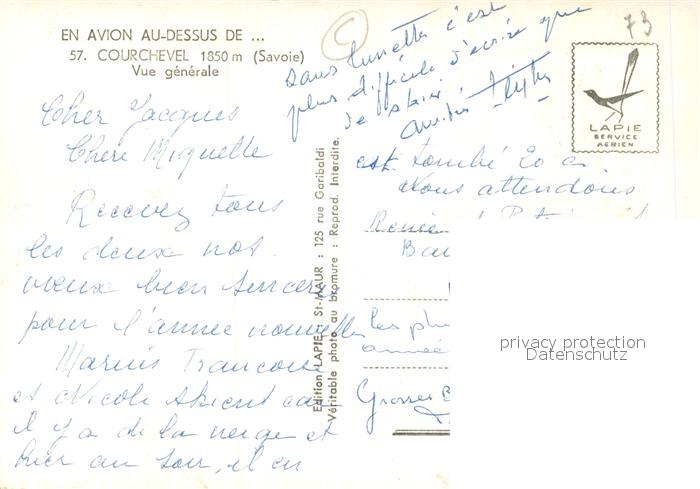 EN AVION AU-DESSUS DE ...
57. COURCHEVEL 1850 m (Savoie)
Vue générale
73
sans lunettes c'est
plus difficile d'écrire que
de skier.
LAPIE
SERVICE
AERIEN
Cher Jacques
Chère Miquette
Recevez tous
les deux nos
vœux bien sincères
pour l'année nouvelle
Marius Francois
et Nicole skient car
il y a de la neige et
hier au soir, il en
Edition LAPIE : St-MAUR : 125 rue Garibaldi
Véritable photo au bromure : Reprod. Interdite.
est tombé 20 c
Nous attendons
Renée
les plu
année
Grosses B
privacy protection
Datenschutz